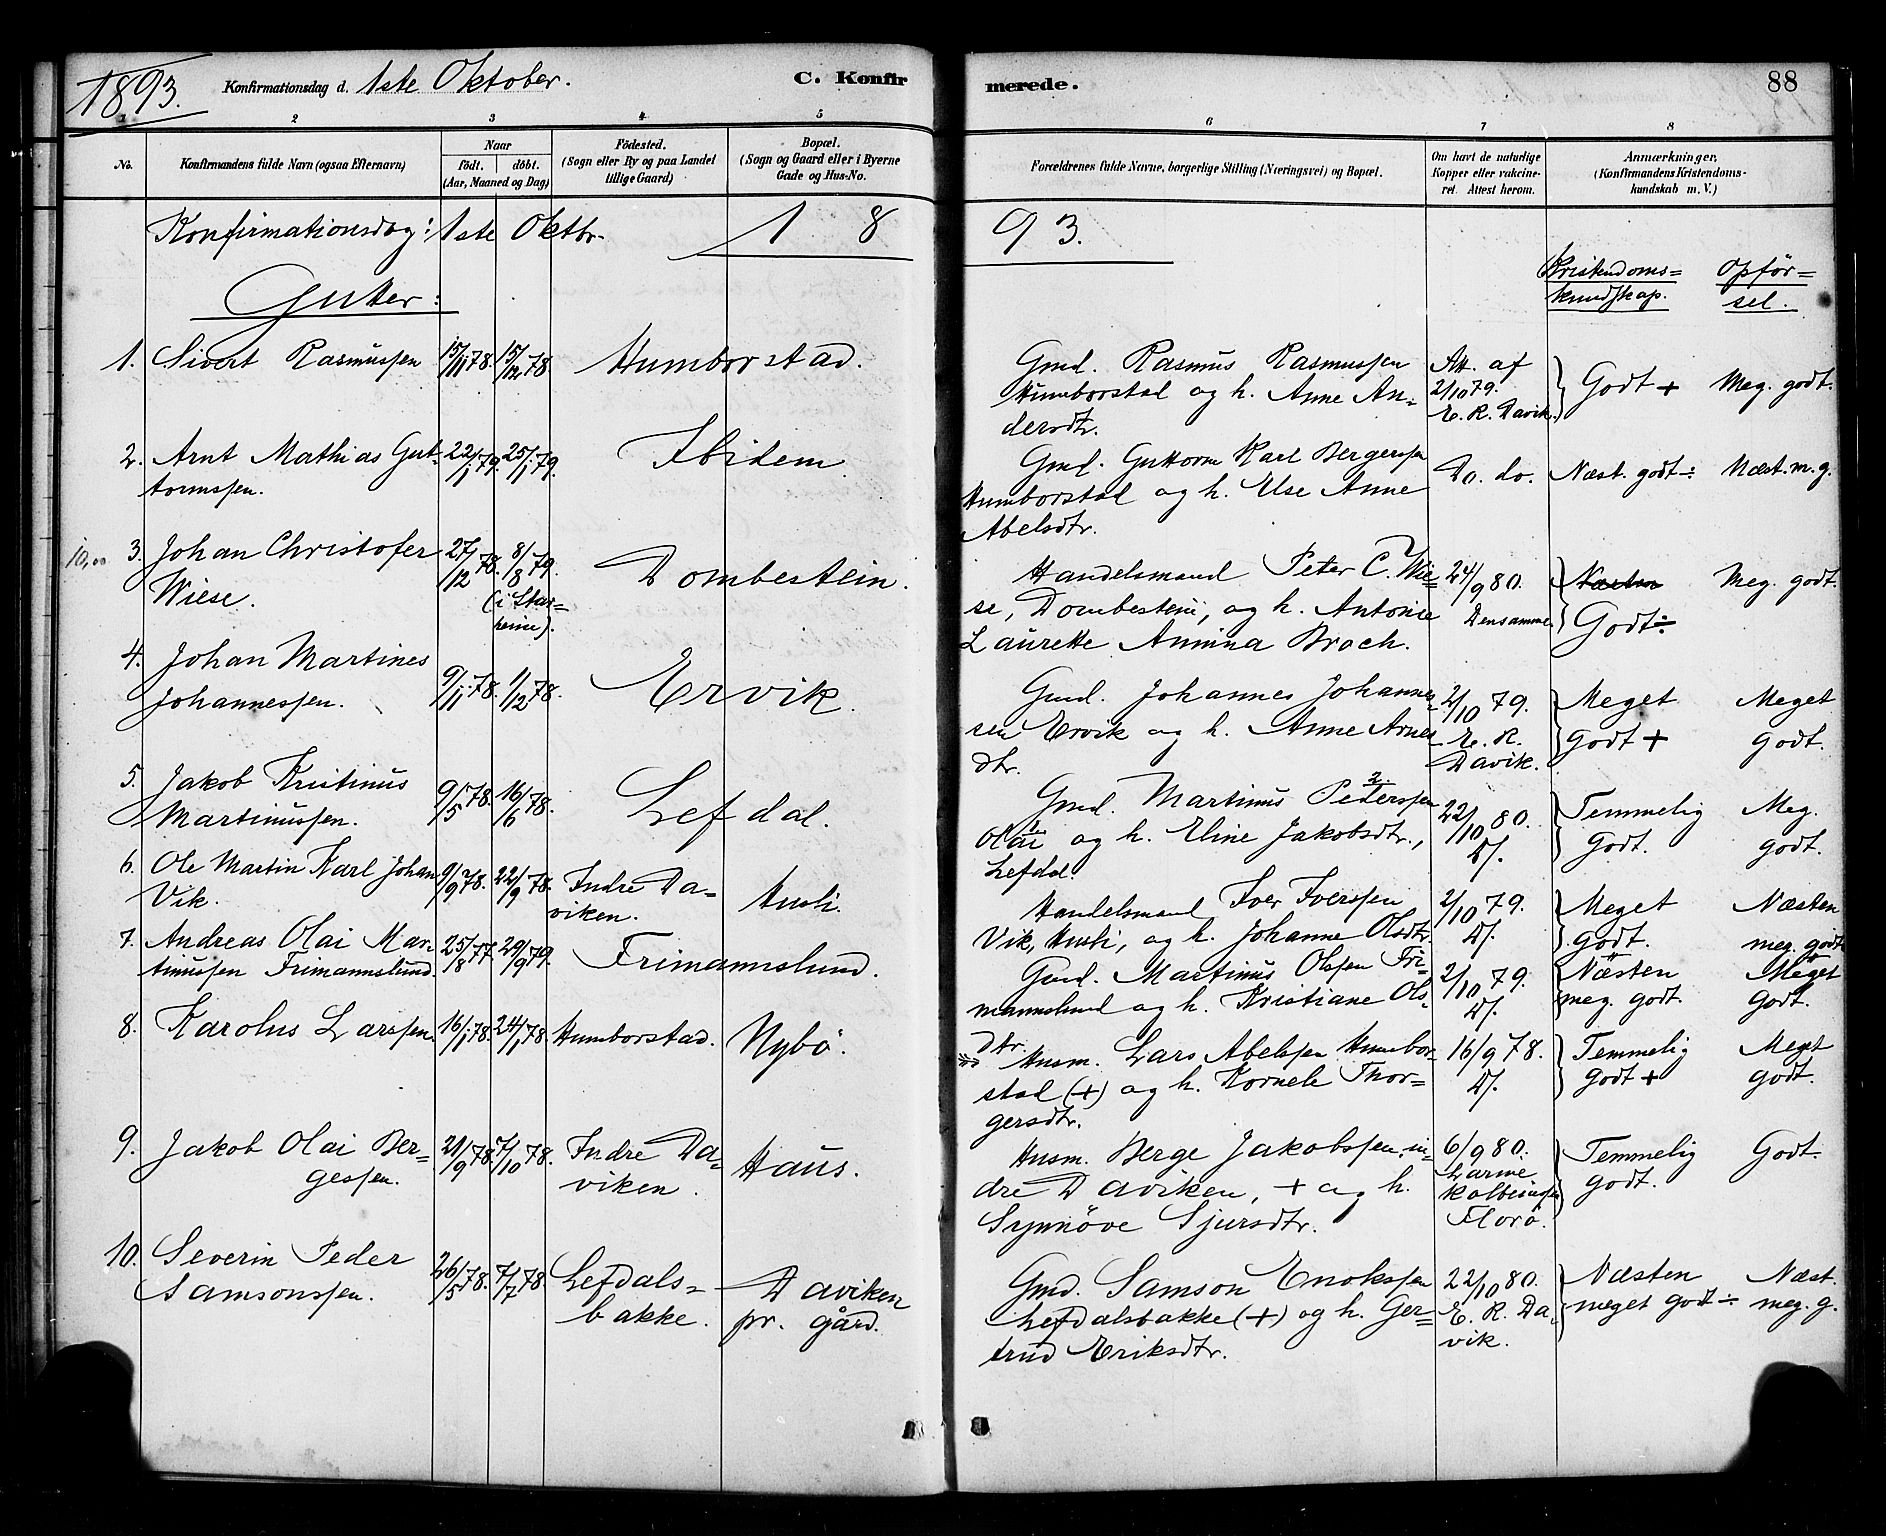 1893. Konfirmationsdag d. 1ste Oktober. C. Konfir
merede. 88
1 2 3 4 5
6 7 8
No. Konfirmandens fulde Navn (ogsaa Efternavn)
Naar
födt. döbt.
(Aar, Maaned og Dag)
Födested.
(Sogn eller By og paa Landet
tillige Gaard)
Bopæl.
(Sogn og Gaard eller i Byerne
Gade og Hus-No.
Forældrenes fulde Navne, borgerlige Stilling (Næringsvei) og Bopæl.
Om havt de naturlige
Kopper eller vakcine-
ret. Attest herom.
Anmærkninger,
(Konfirmandens Kristendoms-
kundskab m. V.)
Konfirmationsdag: 1ste Oktbr. 18
93.
Gutter:
Kristendoms=
kundskap.
Opför=
sel.
1. Sivert Rasmussen 15/11 78. 15/12 78 Humborstad.
Gmd. Rasmus Rasmussen
Humborstad og h. Anne An=
dersdtr.
Att. af
2/10 79.
E. R. Davik.
Godt + Meg. godt.
2. Arnt Mathias Gut-
tormssen.
22/1 79. 25/1 79. Ibidem
Gmd. Guttorm Karl Bergessen
Humborstad og h. Else Anne
Abelsdtr.
Do. do. Næst. godt ÷ Næst. m. g.
10,00 3. Johan Christofer
Wiese.
27/12 78. 8/8 79.
(i Star=
heim).
Dombestein.
Handelsmand Peter C. Wie=
se, Dombestein, og h. Antonie
Laurette Annina Broch.
24/9 80.
Densamme.
Næsten
Godt ÷
Meg. godt.
4. Johan Martines
Johannessen.
9/11 78. 1/12 78. Ervik.
Gmd. Johannes Johannes=
sen Ervik og h. Anne Arnes
dtr.
2/10 79.
E. R.
Davik.
Meget
godt +
Meget
godt.
5. Jakob Kristinus
Martinussen.
9/5 78. 16/6 78. Lefdal.
Gmd. Martinus Pederssen
Olai og h. Eline Jakobsdtr.,
Lefdal.
22/10 80.
D/.
Temmelig
godt.
Meg.
godt.
6. Ole Martin Karl Johan
Vik.
9/9 78. 22/9 78. Indre Da=
viken.
Husli.
Handelsmand Iver Iverssen
Vik, Husli, og h. Johanne Olsdtr.
2/10 79.
D/.
Meget
godt.
Næsten
meg. godt
7. Andreas Olai Mar=
tinussen Frimannslund.
25/8 77 29/9 79. Frimannslund.
Gmd. Martinus Olssen Fri=
mannslund og h. Kristiane Ols-
dtr.
2/10 79.
D/.
Næsten
meg. godt.
Meget
godt.
8. Karolus Larssen. 16/1 78. 24/1 78. Humborstad. Nybö.
Husm. Lars Abelssen Humbor=
stad (+) og h. Kornele Thor=
gersdtr.
16/9 78.
D/.
Temmelig
godt +
Meget
godt.
9. Jakob Olai Ber=
gessen.
21/9 78 7/10 78. Indre Da=
viken.
Haus.
Husm. Berge Jakobssen, in=
dre Daviken, + og h.
Synnöve Sjursdtr.
6/9 80.
Florö.
Temmelig
godt.
Godt.
10. Severin Peder
Samsonssen.
26/5 78. 7/7 78 Lefdals=
bakke.
Daviken
pr. gård.
Gmd. Samson Enokssen
Lefdalsbakke (+) og h. Ger=
trud Eriksdtr.
22/10 80.
E. R. Da-
vik.
Næsten
meget godt ÷
Næst.
meg. g.